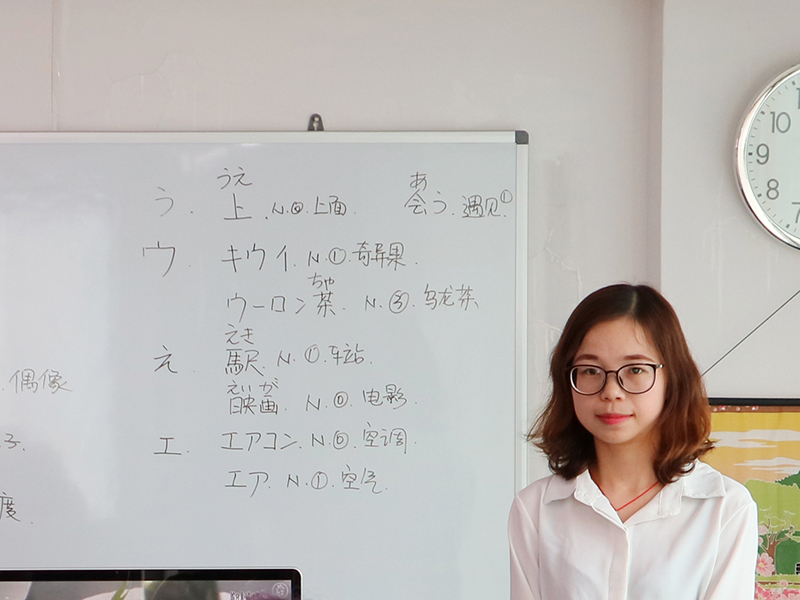 う. 上(うえ) .N.⓪.上面. 会(あ)う.遇见.①
ウ. キウイ.N.①.奇异果.
ウーロン茶(ちゃ). N.③.乌龙茶
え. 駅(えき).N.①.车站.
映画(えいが). N.⓪.电影.
エ. エアコン.N.⓪.空调.
エア.N.①.空气.
偶像
子.
度.
10
9
8
7